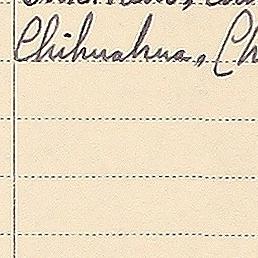 Chihuahua, Ch